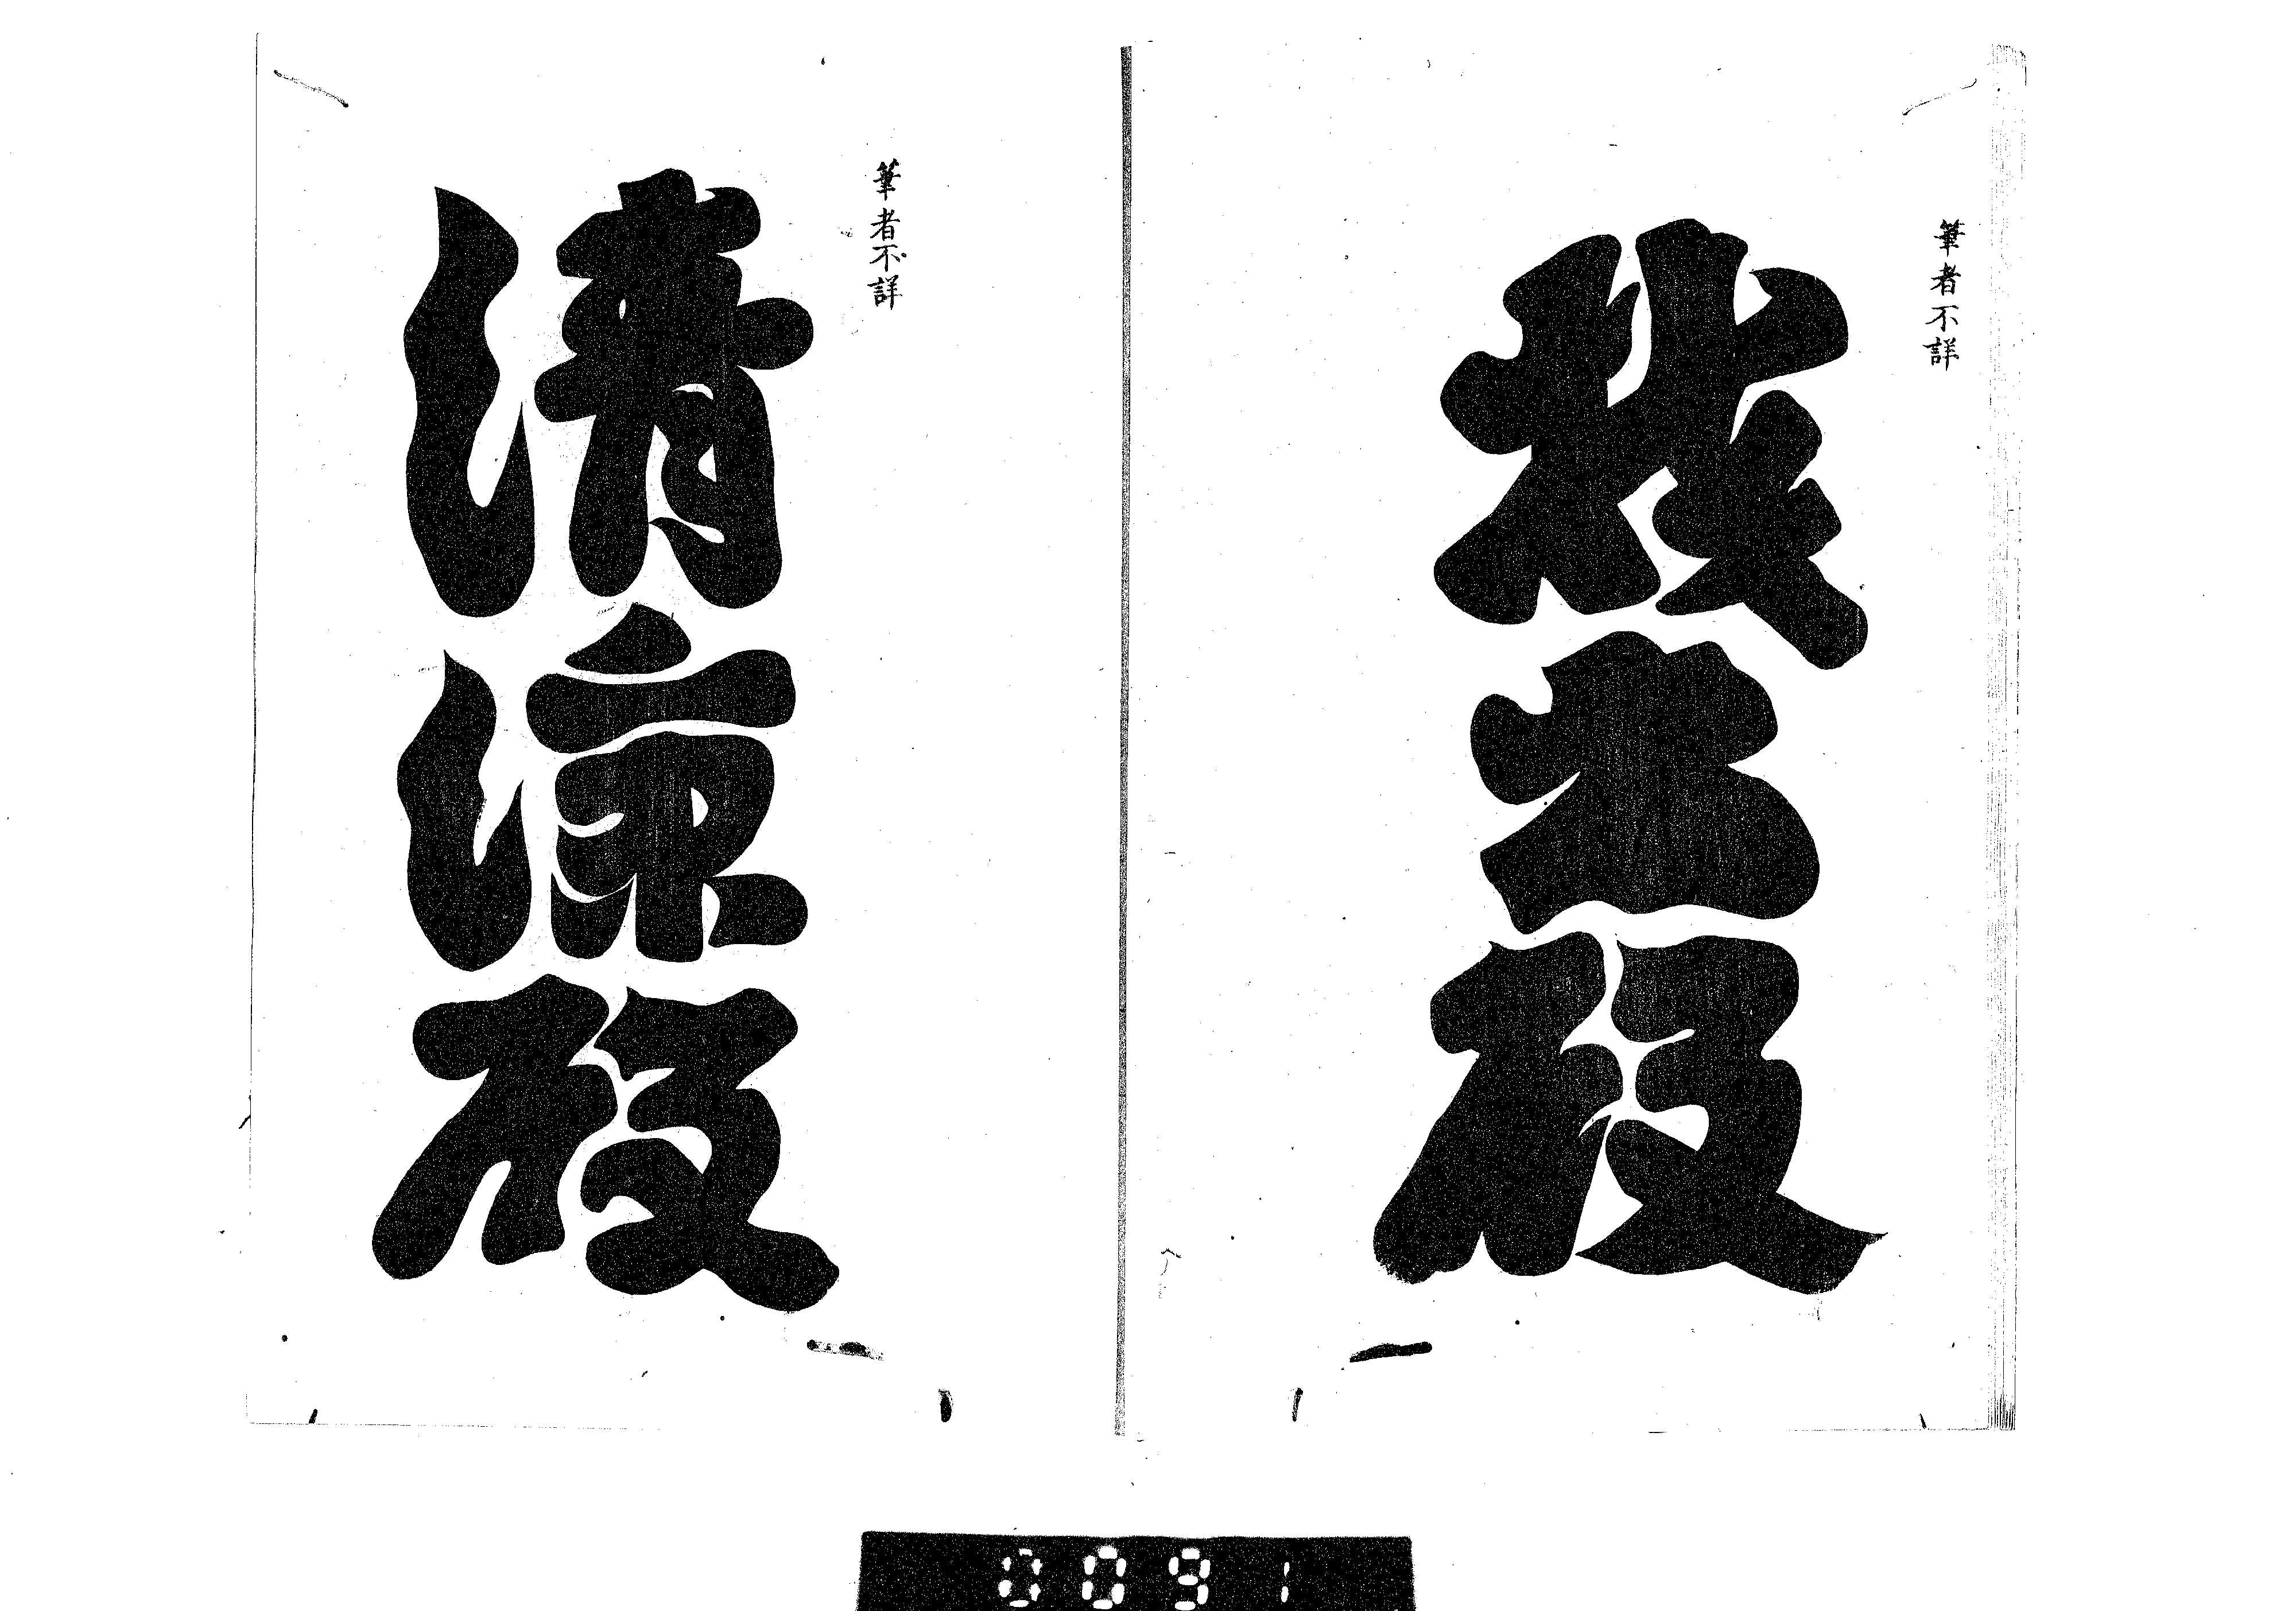 筆者不詳
殿
筆者不詳
清涼殿
0091